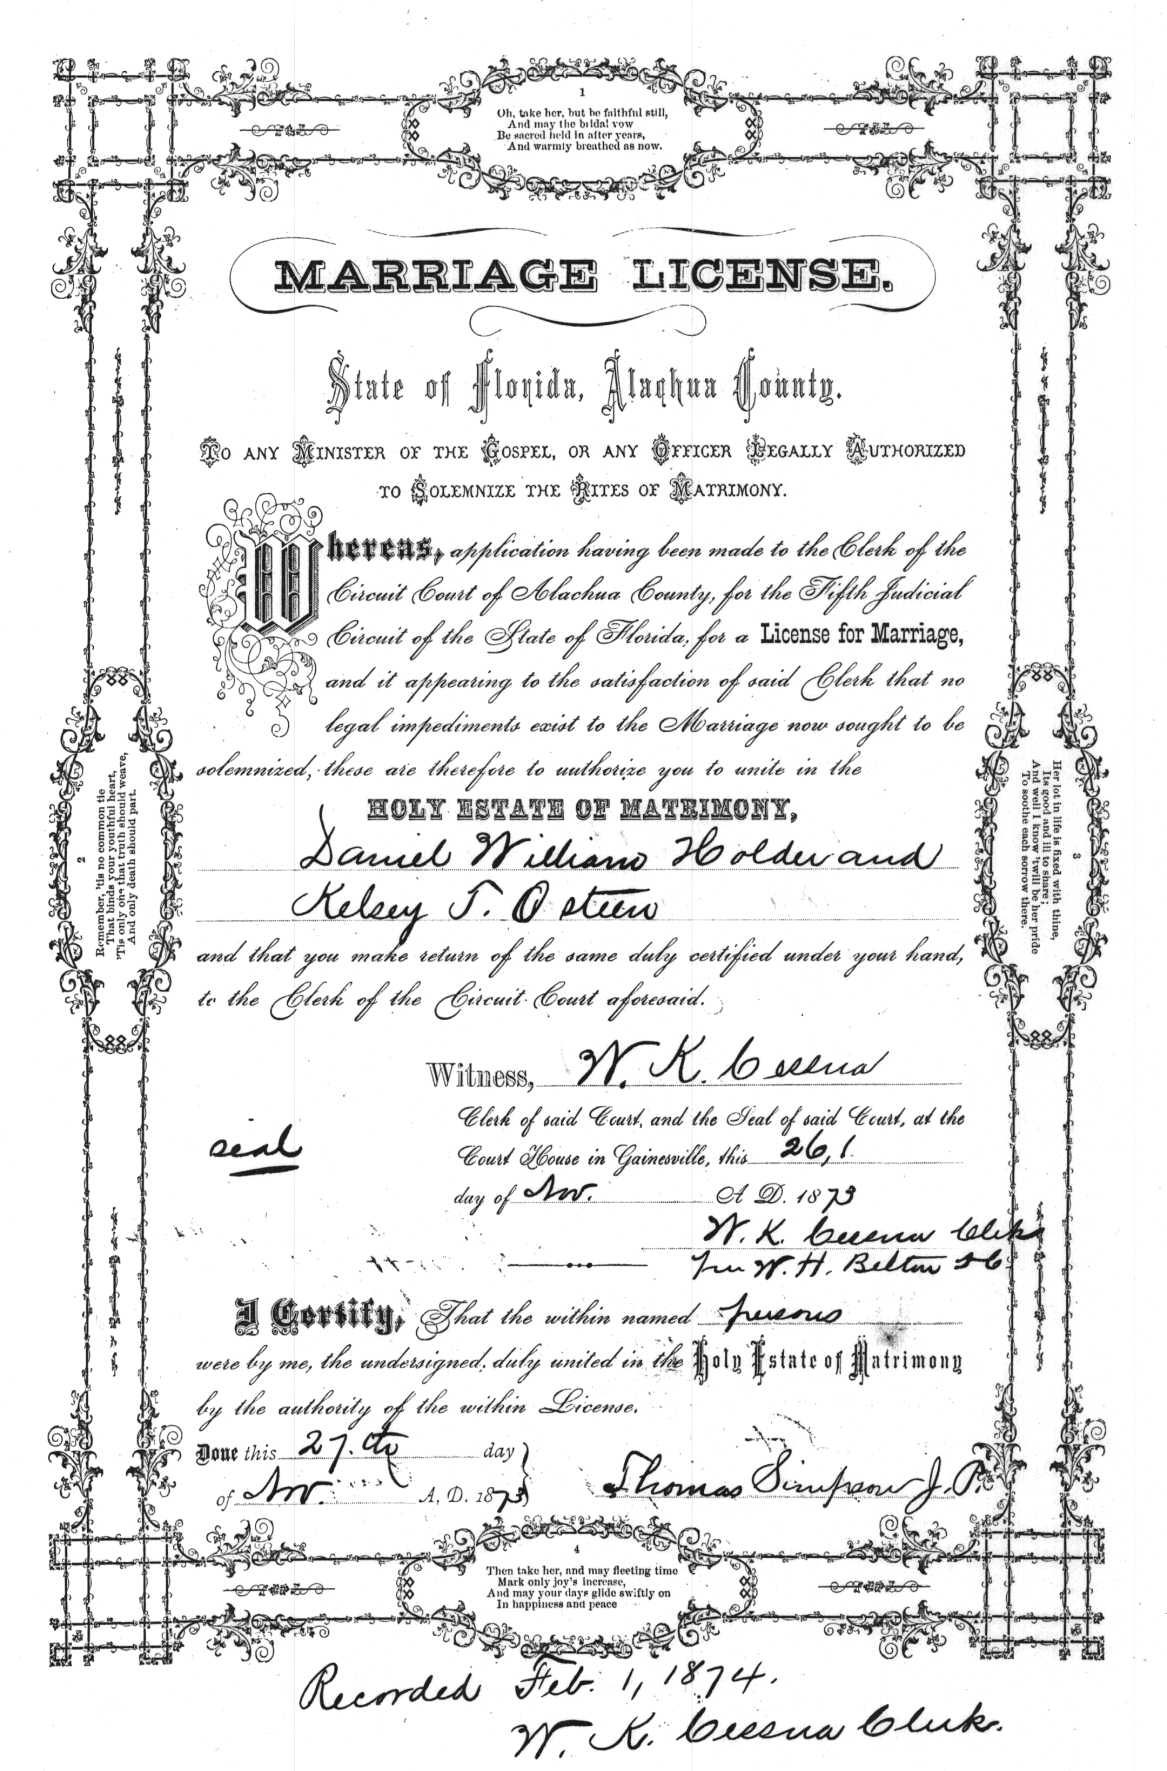 1
Oh, take her, but be faithful still,
And may the bridal vow
Be sacred held in after years,
And warmly breathed as now.
MARRIAGE LICENSE.
State of Florida, Alachua County.
TO ANY MINISTER OF THE GOSPEL, OR ANY OFFICER LEGALLY AUTHORIZED
TO SOLEMNIZE THE RITES OF MATRIMONY.
Whereas, application having been made to the Clerk of the
Circuit Court of Alachua County, for the Fifth Judicial
Circuit of the State of Florida, for a License for Marriage,
and it appearing to the satisfaction of said Clerk that no
legal impediments exist to the Marriage now sought to be
solemnized, these are therefore to authorize you to unite in the
HOLY ESTATE OF MATRIMONY,
Daniel William Holder and
Kelsey T. Osteen
and that you make return of the same duly certified under your hand,
to the Clerk of the Circuit Court aforesaid.
2
Remember, 'tis no common tie
That binds your youthful heart,
'Tis only one that truth should weave,
And only death should part.
3
Her lot in life is fixed with thine,
Its good and ill to share;
And well I know 'twill be her pride
To soothe each sorrow there.
Witness, W. K. Cessna
Clerk of said Court, and the Seal of said Court, at the
seal
Court House in Gainesville, this 26,
day of Nov. A D. 1873
W. K. Cessna Clerk
Per W. H. Belton DC
I Certify, That the within named persons
were by me, the undersigned, duly united in the Holy Estate of Matrimony
by the authority of the within License.
Done this 27.th day
of Nov. A, D. 1873
Thomas Simpson J. P.
4
Then take her, and may fleeting time
Mark only joy's increase,
And may your days glide swiftly on
In happiness and peace
Recorded Feb. 1, 1874.
W. K. Cessna Clerk.